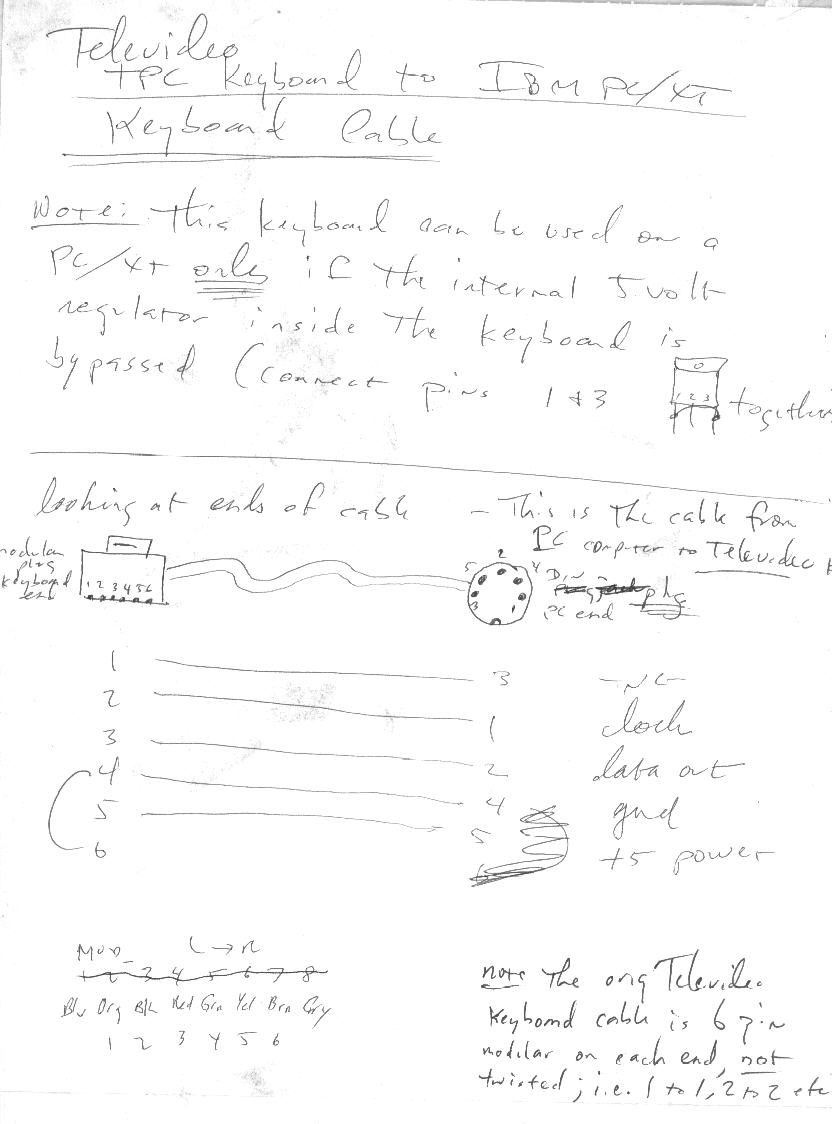 Televideo
TPC Keyboard to IBM PC/XT
Keyboard Cable
Note: This keyboard can be used on a
PC/XT only if the internal 5 volt
regulator inside the keyboard is
bypassed (connect pins 1 & 3
0
1 2 3
together
looking at ends of cable - This is the cable from
PC computer to Televideo k
modular
plug
keyboard
end
1 2 3 4 5 6
5 2 4
3 1
Din
plug
PC end
1 3 -NC-
2 1 clock
3 2 data out
4 4 gnd
5 5
6 +5 power
Mod L → R
1 2 3 4 5 6 7 8
Blu Org Blk Red Grn Yel Brn Gry
1 2 3 4 5 6
note The orig Televideo
keyboard cable is 6 pin
modular on each end, not
twisted; i.e. 1 to 1, 2 to 2 etc